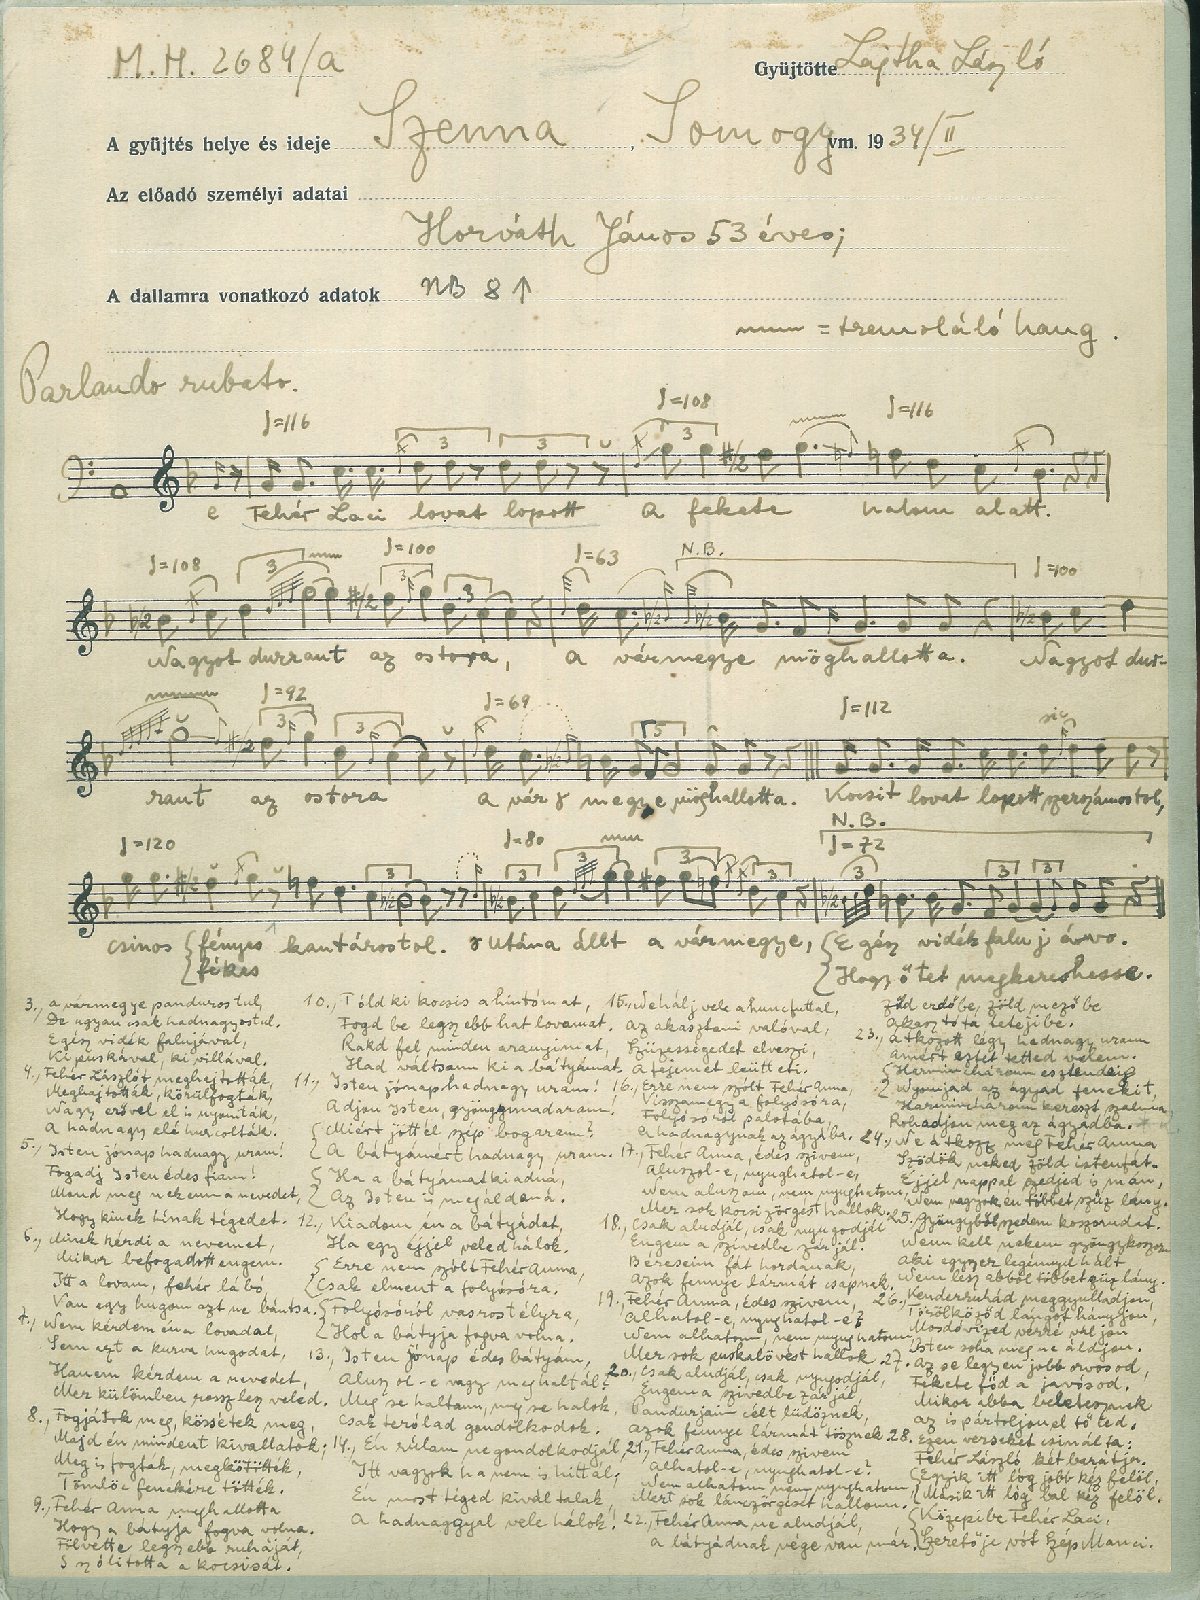 M. H. 2684/a
Gyüjtötte Lajtha László
A gyüjtés helye és ideje Szenna, Somogy vm. 1934/II
Az előadó személyi adatai
Horváth János 53 éves;
A dallamra vonatkozó adatok NB 8 ↑
= tremoláló hang.
Parlando rubato.
♩=116 ♩=108 ♩=116
3 3 3
e Fehér Laci lovat lopott a fekete halom alatt.
♩=108 ♩=100 ♩=63 N.B. ♩=100
3 3 3
Nagyot durrant az ostora, a vármegye möghallotta. Nagyot dur-
♩=92 ♩=69 ♩=112
3 3 5 sic
rant az ostora a vár megye möghallotta. Kocsit lovat lopott szerszámostol,
♩=120 ♩=80 N.B. ♩=72
3 3 3 3 3 3 3 3
csinos {fényes kantárostol. Utána állt a vármegye, {Egész vidék falujávo.
{fékes {Hogy őtet megkereshesse.
3., a vármegye pandurostul,
De ugyan csak hadnagyostul.
Egész vidék falujával,
Ki puskával, ki villával.
4., Fehér Lászlót meghajtották,
Meghajtották, körülfogták,
Vagy erővel el is nyomták,
A hadnagy elé hurcolták.
5., Isten jónap hadnagy uram!
Fogadj Isten édes fiam!
Mond meg nekem a nevedet,
Hogy kinek hínak tégedet.
6., Minek kérdi a nevemet,
Mikor befogadott engem.
Itt a lovam, fehér lábó
Van egy hugom azt ne bántsa.
7., Nem kérdem én a lovadat,
Sem azt a kurva hugodat,
Hanem kérdem a nevedet,
Mer külömben rossz lesz veled.
8., Fogjátok meg, kössétek meg,
Majd én mindent kivallatok;
Meg is fogták, megkötötték,
Tömlöc fenekére tötték.
9., Fehér Anna meghallotta
Hogy a bátyja fogva volna.
Fölvette legszebb ruháját,
S szólította a kocsisát.
10., Tóld ki kocsis a hintómat,
Fogd be legszebb hat lovamat.
Rakd fel minden aranyimat,
Had váltsam ki a bátyámat.
11., Isten jónap hadnagy uram!
Adjon Isten, gyöngymadaram!
{Miért jöttél szép bogaram?
{A bátyámért hadnagy uram.
{Ha a bátyámat kiadná,
{Az Isten is megáldaná.
12., Kiadom én a bátyádat,
Ha egy éjjel veled hálok.
{Erre nem szólt Fehér Anna,
{Csak elment a folyósóra.
{Folyósóról vasrostélyra,
{Hol a bátyja fogva volna.
13., Isten jónap édes bátyám,
Aluszol-e vagy meghaltál?
Meg se haltam, meg se halok,
Csak terólad gondolkodok.
14., Én rúlam ne gondolkodjál,
Itt vagyok ha nem is hittál;
Én most téged kivál talak,
A hadnaggyal vele hálok!
15., Ne hálj vele a huncfuttal,
Az akasztani valóval,
Szüzességedet elveszi,
A fejemet leütteti.
16., Erre nem szólt Fehér Anna,
Visszamegy a folyósóra,
Folyósóról palotába,
A hadnagynak az ágyába.
17., Fehér Anna, édes szívem,
Aluszol-e, nyughatol-e,
Nem aluszom, nem nyughatom,
Mer sok kocsizörgést hallok.
18., Csak aludjál, csak nyugodjál
Engem a szívedbe zárjál.
Béreseim fát hordanak,
Azok fennye lármát csapnak.
19., Fehér Anna, édes szívem,
Alhatol-e, nyughatol-e?
Nem alhatom, nem nyughatom,
Mer sok puskalövést hallok.
20., Csak aludjál, csak nyugodjál,
Engem a szívedbe zárjál.
Pandurjaim célt lüdöznek,
Azok fennye lármát tösznek.
21., Fehér Anna, édes szívem
Alhatol-e, nyughatol-e?
Nem alhatom nem nyughatom
Mert sok lánczörgést hallom.
22., Fehér Anna ne aludjál,
a bátyádnak vége van már.
Zöd erdőbe, zöld mezőbe
Akasztófa tetejibe.
23., Átkozott légy hadnagy uram
Amért eztet tetted velem.
{Harminchárom esztendeig
{Nyomjad az ágyad fenekit,
Harminchárom kereszt szalma
Rohadjon meg az ágyadba.
24., Ne átkozz meg Fehér Anna
Szödök neked zöld istenfát.
Éjjel nappal szedjed is mán,
Nem vagyok én többet szüz lány.
25., Gyöngyből szedem koszorudat.
Nem kell nekem gyöngykoszoru
Aki egyszer legénnyel hált
Nem lesz abból többet szüz lány.
26., Kenderruhád meggyulladjon,
Törölköződ lángot hányjon,
Mosdóvized vérré váljon
Isten soha meg ne áldjon.
27., Az se legyen jobb orvosod,
Fekete föd a javósod.
Mikor abba beletesznek
Az is pártoljon el tőled.
28., Ezen verseket csinálta:
Fehér László két barátja.
{Egyik itt lóg jobb kéz felöl,
{Másik itt lóg bal kéz felöl.
{Középibe Fehér Laci,
{Szeretője vót Szép Manci.